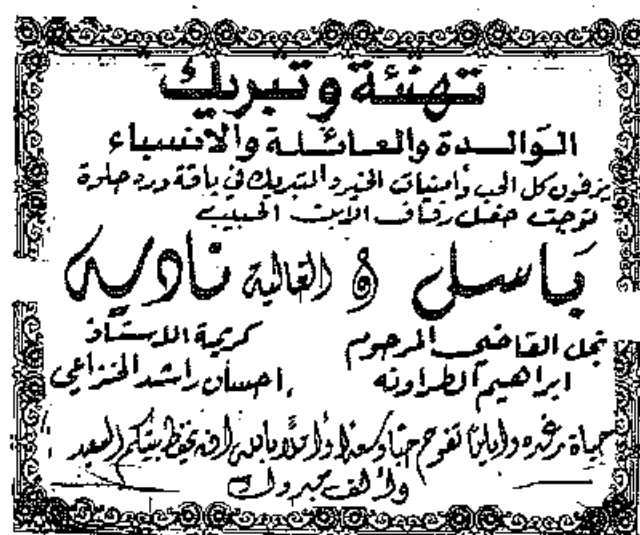 تهنئة وتبريك
الوالدة والعائلة والانسباء
يزفون كل الحب وأمنيات الخير والتبريك في باقة ورد حلوة
توجت حفل زفاف الابن الحبيب
باسل و الغالية نادية
نجل القاضي المرحوم
ابراهيم الطراونه
كريمة الاستاذ
احسان راشد الخزاعي
حياة رغده وايامًا تفوح حبًا وسعدًا وأملًا بالله أن يحفظ بيتكم السعيد
وألف مبروك